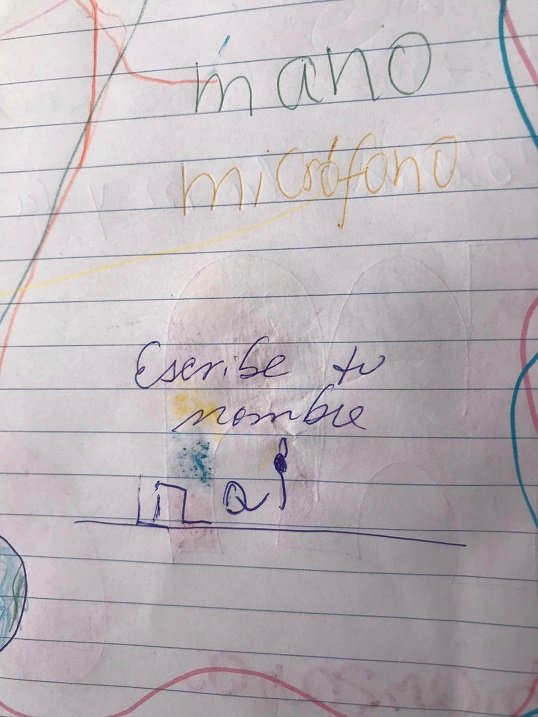 mano
micrófono
Escribe tu
nombre